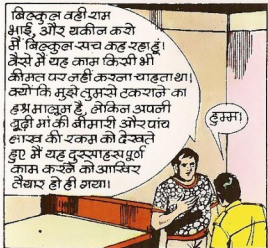 बिल्कुल वही राम
भाई, और यकीन करो
मैं बिल्कुल सच कह रहा हूं!
वैसे मैं यह काम किसी भी
कीमत पर नहीं करना चाहता था!
क्यों कि मुझे तुमसे टकराने का
हश्र मालूम है, लेकिन अपनी
बूढ़ी मां की बीमारी और पांच
लाख की रकम को देखते
हुए मैं यह दुस्साहसपूर्ण
काम करने को आखिर
तैयार हो ही गया।
हुम्म!